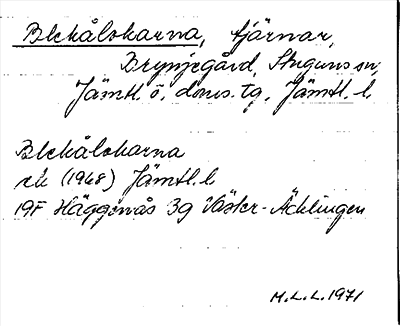 Blekålokarna, tjärnar,
Brynjegård, Stuguns sn,
Jämtl. ö. doms. tg, Jämtl. l.
Blekålokarna
ek (1968) Jämtl. l.
19F Häggenås 3g Väster-Äcklingen
M.L.L. 1971